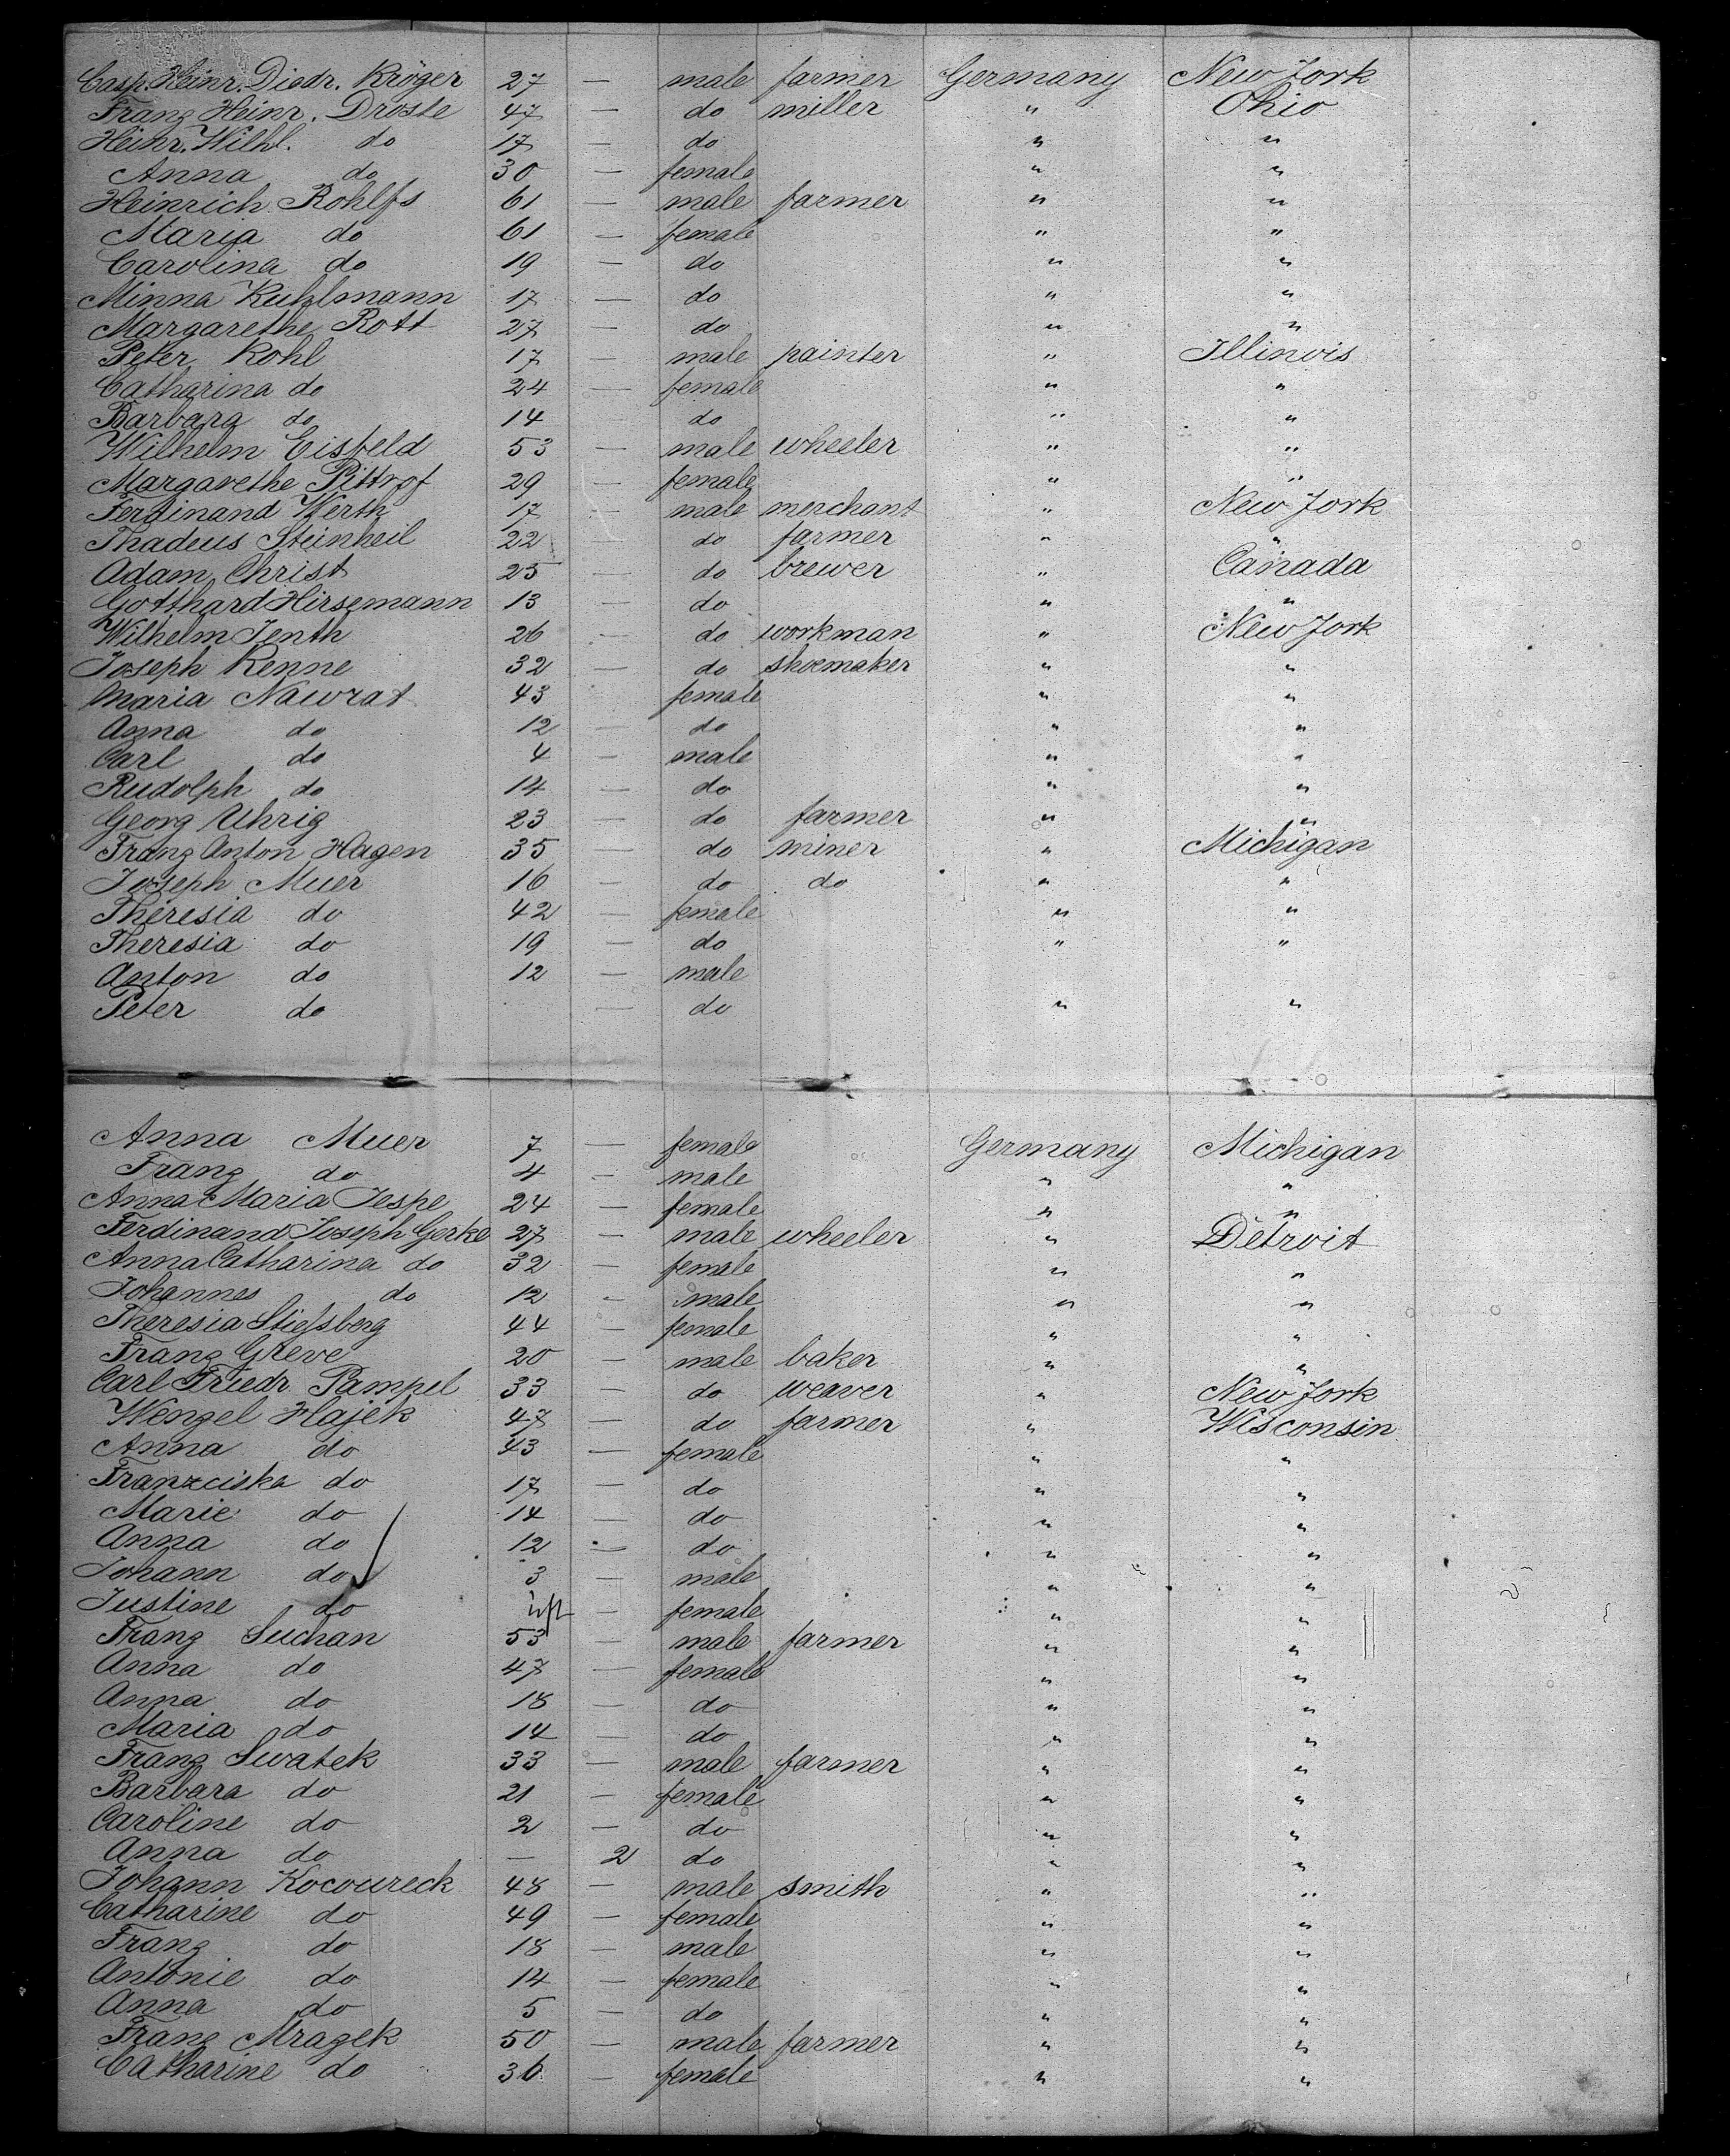 Casp. Heinr. Diedr. Kröger 27 — male farmer Germany New York
Franz Heinr. Droste 47 — do miller " Ohio
Heinr. Wilhl. do 17 — do " "
Anna do 30 — female " "
Heinrich Rohlfs 61 — male farmer " "
Maria do 61 — female " "
Carolina do 19 — do " "
Minna Kuhlmann 17 — do " "
Margarethe Rott 27 — do " "
Peter Kohl 17 — male painter " Illinois
Catharina do 24 — female " "
Barbara do 14 — do " "
Wilhelm Eisfeld 53 — male wheeler " "
Margarethe Pittrof 29 — female " "
Ferdinand Werth 17 — male merchant " New York
Thadeus Steinheil 22 — do farmer " "
Adam Christ 25 — do brewer " Canada
Gotthard Hirsemann 13 — do " "
Wilhelm Jenth 26 — do workman " New York
Joseph Renne 32 — do shoemaker " "
Maria Nawrat 43 — female " "
Anna do 12 — do " "
Carl do 4 — male " "
Rudolph do 14 — do " "
Georg Uhrig 23 — do farmer " "
Franz Anton Hagen 35 — do miner " Michigan
Joseph Muer 16 — do do " "
Theresia do 42 — female " "
Theresia do 19 — do " "
Anton do 12 — male
Peter do — do " "
Anna Muer 7 — female Germany Michigan
Franz do 4 — male " "
Anna Maria Jespe 24 — female " "
Ferdinand Joseph Gerke 27 — male wheeler " Detroit
Anna Catharina do 32 — female " "
Johannes do 12 — male " "
Theresia Stiefsberg 44 — female " "
Franz Greve 20 — male baker " "
Carl Friedr Pampel 33 — do weaver " New York
Wenzel Hajek 47 — do farmer " Wisconsin
Anna do 43 — female " "
Franzciska do 17 — do " "
Marie do 14 — do " "
Anna do 12 — do " "
Johann do 3 — male " "
Justine do inft — female " "
Franz Suchan 53 — male farmer " "
Anna do 47 — female " "
Anna do 18 — do " "
Maria do 14 — do " "
Franz Swatek 33 — male farmer " "
Barbara do 21 — female " "
Caroline do 2 — do " "
Anna do — 2 do " "
Johann Kocoureck 48 — male smith " "
Catharine do 49 — female " "
Franz do 18 — male " "
Antonie do 14 — female " "
Anna do 5 — do " "
Franz Mrazek 50 — male farmer " "
Catharine do 36 — female " "